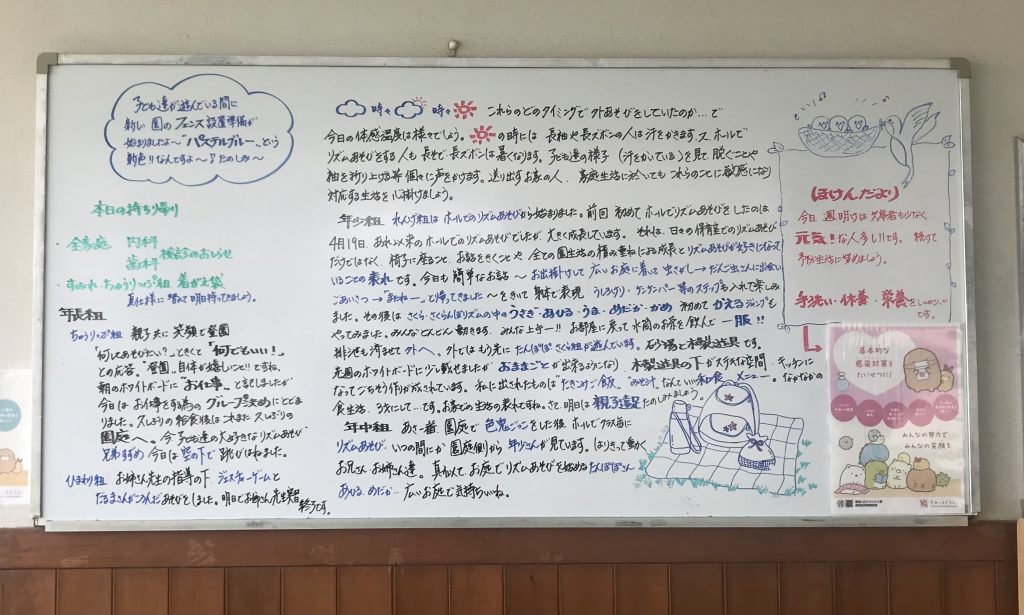 子ども達が遊んでいる間に
新しい園のフェンス設置準備が
始まりましたよ〜"パステルブルー"という
新色!!なんですよ〜♪たのしみ〜
本日の持ち帰り
・全家庭 内科
歯科 検診のおしらせ
・すみれ・ちゅうりっぷ組 着がえ袋
真仕様に替えて明日持ってきましょう。
年長組
ちゅうりっぷ組 親子共に笑顔で登園
「何してあそびたい?」ときくと「何でもいい!」
との応答。"登園"自体が嬉しいこと!!ですね。
朝のホワイトボードに「お仕事」と記しましたが
今日はお仕事をする為のグループ決めにとどま
りました。久しぶりの給食後はこれまた久しぶりの
園庭へ。今、子ども達の大好きなリズムあそび
兄弟すずめ 今日は空の下で跳びはねました。
ひまわり組 お姉さん先生の指導の下 ジェスチャーゲームと
だるまさんがころんだあそびをしました。明日でお姉さん先生実習
終了です。
時々 時々 これらのどのタイミングで外あそびをしていたのか…で
今日の体感温度は様々でしょう。 の時には長袖や長ズボンの人は汗をかきます。又、ホールで
リズムあそびをする人も長そで長ズボンは暑くなります。子ども達の様子(汗をかいている)を見て、脱ぐことや
袖を折り上げる等個々に声をかけます。送り出すお家の人、家庭生活に於いてもこれらのことに敏感になり
対応する生活を心掛けましょう。
年少組 れんげ組はホールでのリズムあそびから始まりました。前回初めてホールでリズムあそびをしたのは
4月19日。あれ以来のホールでのリズムあそびでしたが、大きく成長しています。それは、日々の保育でのリズムあそび
だけではなく、椅子に座ること、お話をきくことや全ての園生活の積み重ねによる成長とリズムあそびが好きになって
いることの表れです。今日も簡単なお話〜お出掛けして広いお庭に着いて虫さがし→だんご虫さんに出会い
ごあいさつ→「またねー」と帰ってきました〜をきいて身体で表現 うしろ歩り・ケンケンパー等のステップも入れて楽しみ
ました。その後はさくら・さくらんぼリズムの中のうさぎ・あひる・うま・めだか・かめ 初めてかえるジャンプも
やってみました。みんなどんどん動きます。みんな上手ー!! お部屋に戻って水筒のお茶を飲んで一服!!
排泄も済ませて外へ。外ではもう先にたんぽぽ さくら組が遊んでいます。砂場と木製遊具です。
先週のホワイトボードに少し載せましたが おままごとが出来るようになり、木製遊具の下がステキな空間・キッチンに
なってごちそう作りが成されています。私に出されたものは"たきこみご飯"、"みそ汁"なんていい和食メニュー。なかなかの
食生活、うちにして…です。お家での生活の表れですね。さて、明日は親子遠足たのしみましょう。
年中組 あさ一番 園庭で色鬼ごっこをした後 ホールでクラス毎に
リズムあそび。いつの間にか園庭側から年少さんが見ています。はりきって動く
お兄さんお姉さん達。真似てお庭でリズムあそびを始めるたんぽぽさん
あひる、めだか… 広いお庭で気持ちいいね。
ほけんだより
今日、週明けは欠席者も少なく
元気!な人多し!!です。続けて
予防生活に努めましょう。
手洗い・休養・栄養をしっかり!!
です。
基本的な
感染対策を
たいせつに!
みんなの努力で
みんなの笑顔を